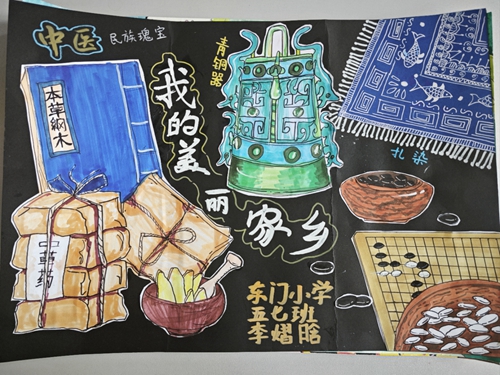 中医 民族瑰宝
青铜器
本草纲木
我的美
丽
家乡
扎染
中草药
东门小学
五七班
李熠晗